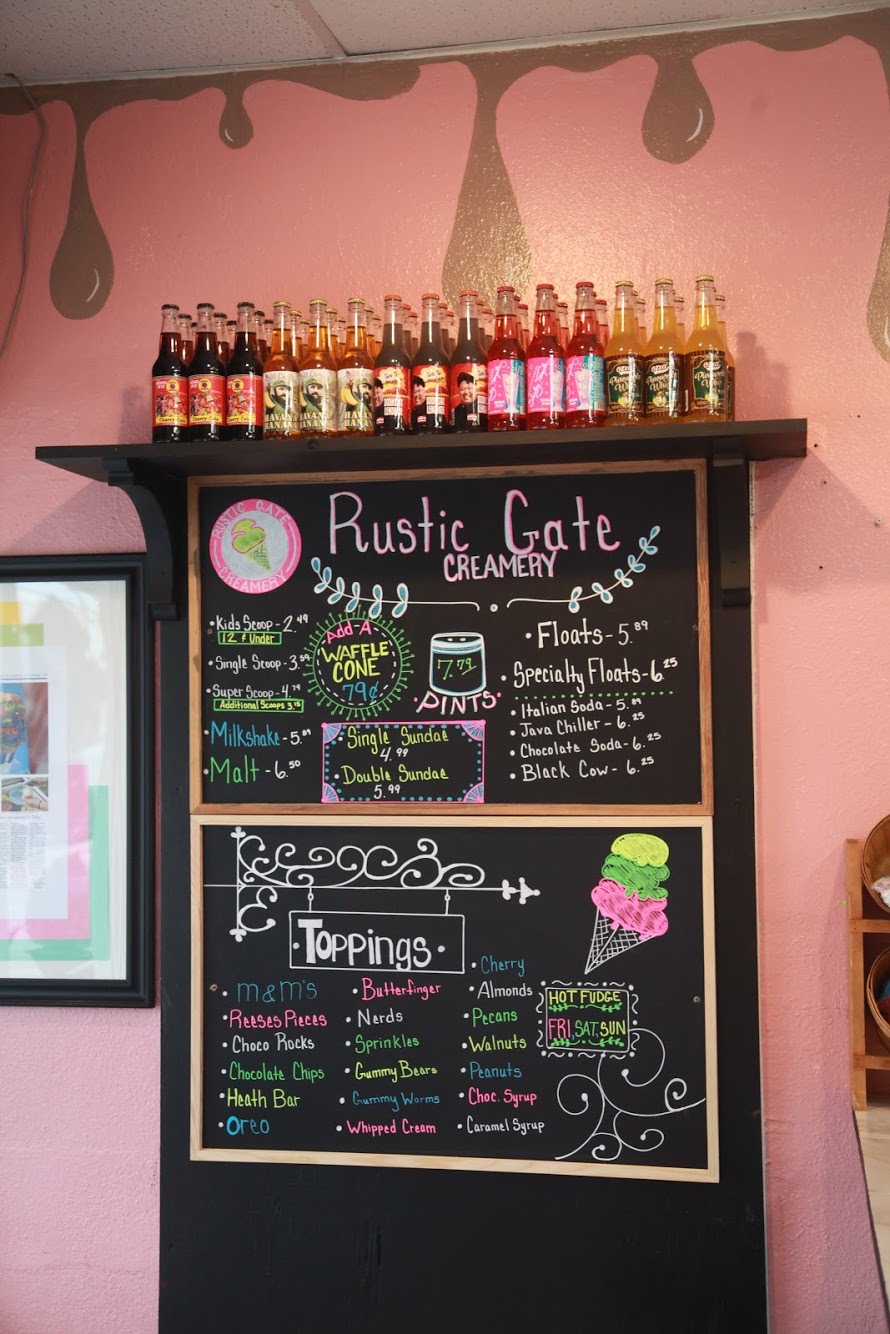 HAVANA
BANANA
RUSTIC GATE
CREAMERY
Rustic Gate
CREAMERY
• Kids Scoop - 2.49
12 & Under
• Single Scoop - 3.59
• Super Scoop - 4.79
Additional Scoops 3.15
• Milkshake - 5.89
• Malt - 6.50
Add-A
WAFFLE
CONE
79¢
7.79
• PINTS •
• Single Sundae
4.99
• Double Sundae
5.99
• Floats - 5.89
• Specialty Floats - 6.25
• Italian Soda - 5.89
• Java Chiller - 6.25
• Chocolate Soda - 6.25
• Black Cow - 6.25
• Toppings •
• M&M's
• Reeses Pieces
• Choco Rocks
• Chocolate Chips
• Heath Bar
• Oreo
• Butterfinger
• Nerds
• Sprinkles
• Gummy Bears
• Gummy Worms
• Whipped Cream
• Cherry
• Almonds
• Pecans
• Walnuts
• Peanuts
• Choc. Syrup
• Caramel Syrup
HOT FUDGE
FRI, SAT, SUN